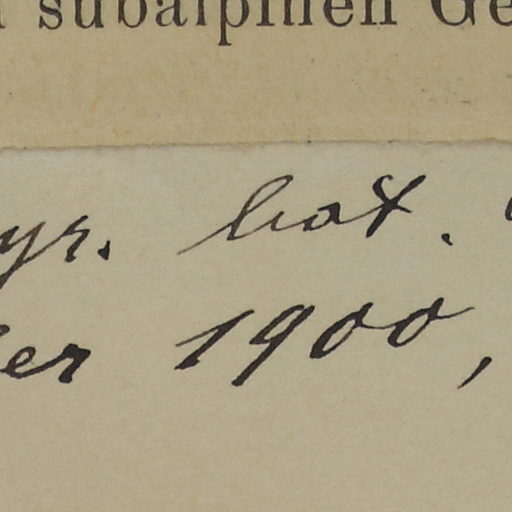 subalpinen Ge
yr. bot.
er 1900,